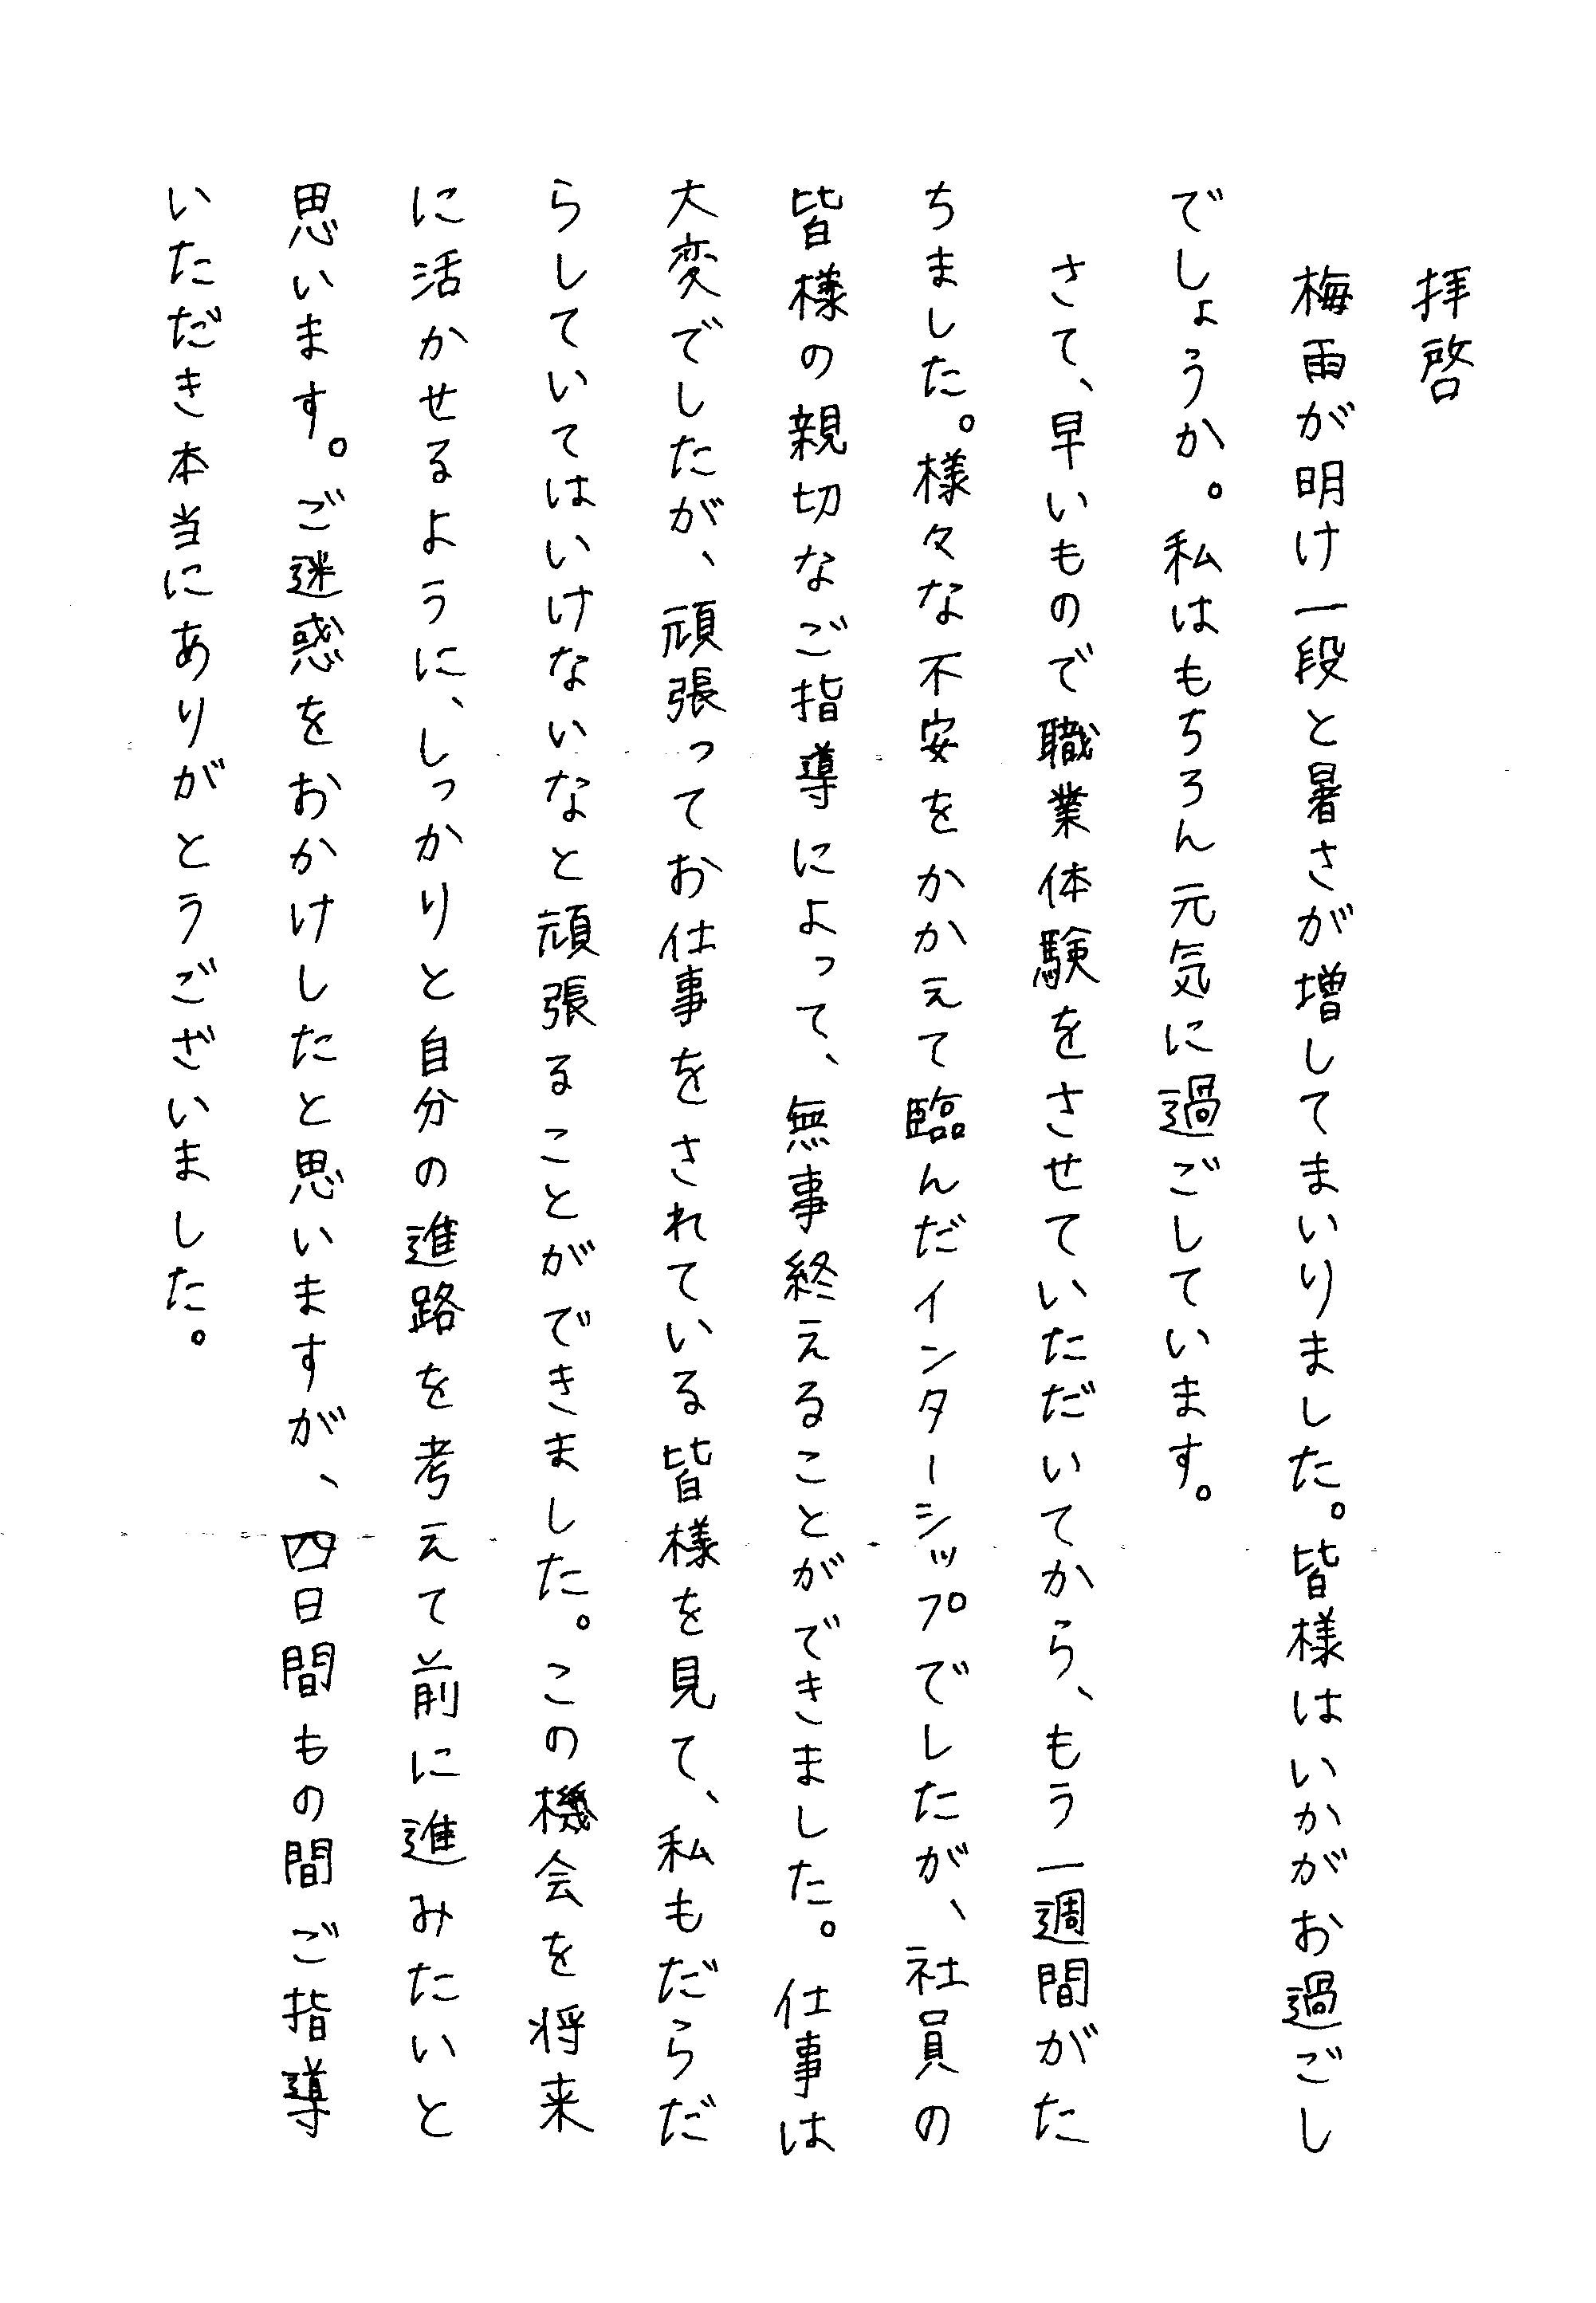 拝啓
梅雨が明け一段と暑さが増してまいりました。皆様はいかがお過ごし
でしょうか。私はもちろん元気に過ごしています。
さて、早いもので職業体験をさせていただいてから、もう一週間がた
ちました。様々な不安をかかえて臨んだインターシップでしたが、社員の
皆様の親切なご指導によって、無事終えることができました。仕事は
大変でしたが、頑張ってお仕事をされている皆様を見て、私もだらだ
らしていてはいけないなと頑張ることができました。この機会を将来
に活かせるように、しっかりと自分の進路を考えて前に進みたいと
思います。ご迷惑をおかけしたと思いますが、四日間もの間ご指導
いただき本当にありがとうございました。